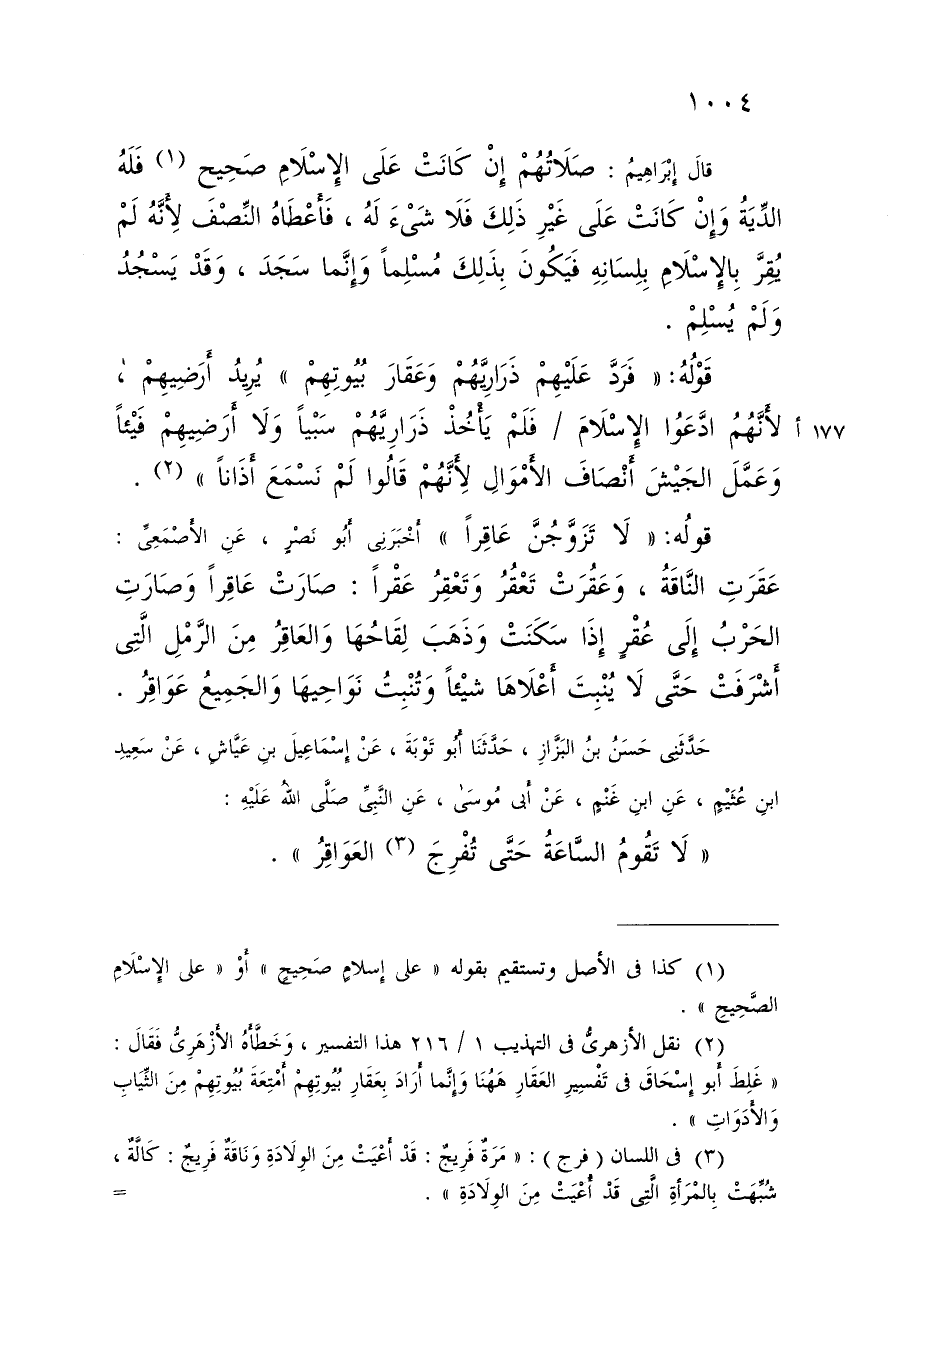 ١٠٠٤
قالَ إِبْرَاهِيمُ : صَلَاتُهُمْ إِنْ كَانَتْ عَلَى الإِسْلَامِ صَحِيح (١) فَلَهُ
الدِّيَةُ وَإِنْ كَانَتْ عَلَى غَيْرِ ذَلِكَ فَلَا شَىْءَ لَهُ ، فَأَعْطَاهُ النِّصْفَ لِأَنَّهُ لَمْ
يُقِرَّ بِالإِسْلَامِ بِلِسَانِهِ فَيَكُونَ بِذَلِكَ مُسْلِماً وَإِنَّما سَجَدَ ، وَقَدْ يَسْجُدُ
وَلَمْ يُسْلِمْ .
قَوْلُهُ: « فَرَدَّ عَلَيْهِمْ ذَرَارِيَّهُمْ وَعَقَارَ بُيُوتِهِمْ » يُرِيدُ أَرَضِيهِمْ ،
١٧٧ أ لأَنَّهُمُ ادَّعَوُا الإِسْلَامَ / فَلَمْ يَأْخُذْ ذَرَارِيَّهُمْ سَبْياً وَلَا أَرَضِيهِمْ فَيْئاً
وَعَمَّلَ الجَيْشَ أَنْصَافَ الأَمْوَالِ لِأَنَّهُمْ قَالُوا لَمْ نَسْمَعَ أَذَاناً » (٢) .
قولُه: « لَا تَزَوَّجُنَّ عَاقِراً » أخْبَرَنِى أبُو نَصْرٍ ، عَنِ الأَصْمَعِىِّ :
عَقَرَتِ النَّاقَةُ ، وَعَقُرَتْ تَعْقُرُ وَتَعْقِرُ عَقْراً : صارَتْ عَاقِراً وَصَارَتِ
الحَرْبُ إِلَى عُقْرٍ إِذَا سَكَنَتْ وَذَهَبَ لِقَاحُهَا وَالعَاقِرُ مِنَ الرَّمْلِ الَّتِى
أَشْرَفَتْ حَتَّى لَا يُنْبِتَ أَعْلَاهَا شيْئاً وَتُنْبِتُ نَوَاحِيهَا وَالجَمِيعُ عَوَاقِرُ .
حَدَّثَنِى حَسَنُ بنُ البَزَّازِ ، حَدَّثَنَا أَبُو تَوْبَةَ ، عَنْ إِسْمَاعِيلَ بنِ عَيَّاشٍ ، عَنْ سَعِيدِ
ابنِ عُثَيْمٍ ، عَنِ ابنِ غَنْمٍ ، عَنْ أبِى مُوسَىٰ ، عَنِ النَّبِىِّ صَلَّى اللهُ عَلَيْهِ :
« لَا تَقُومُ السَّاعَةُ حَتَّى تُفْرِجَ (٣) العَوَاقِرُ » .
(١) كذا فى الأصل وتستقيم بقوله « على إسلامٍ صَحِيحٍ » أَوْ « على الإِسْلَامِ
الصَّحِيحِ » .
(٢) نقل الأزهرىُّ فى التهذيب ١ / ٢١٦ هذا التفسير ، وَخَطَّأَهُ الأزْهَرِىُّ فَقَالَ :
« غَلِطَ أبو إسْحَاقَ فى تَفْسِيرِ العَقَارِ هٰهُنَا وَإِنَّما أَرَادَ بِعَقَارِ بُيُوتِهِمْ أمْتِعَةَ بُيُوتِهِمْ مِنَ الثِّيَابِ
وَالأَدَوَاتِ » .
(٣) فى اللسان ( فرج ) : « مَرَةٌ فَرِيجٌ : قَدْ أَعْيَتْ مِنَ الوِلَادَةِ وَنَاقَةٌ فَرِيجٌ : كَالَّةٌ ،
شُبِّهَتْ بِالمْرَأةِ الَّتِى قَدْ أَعْيَتْ مِنَ الوِلَادَةِ » . =